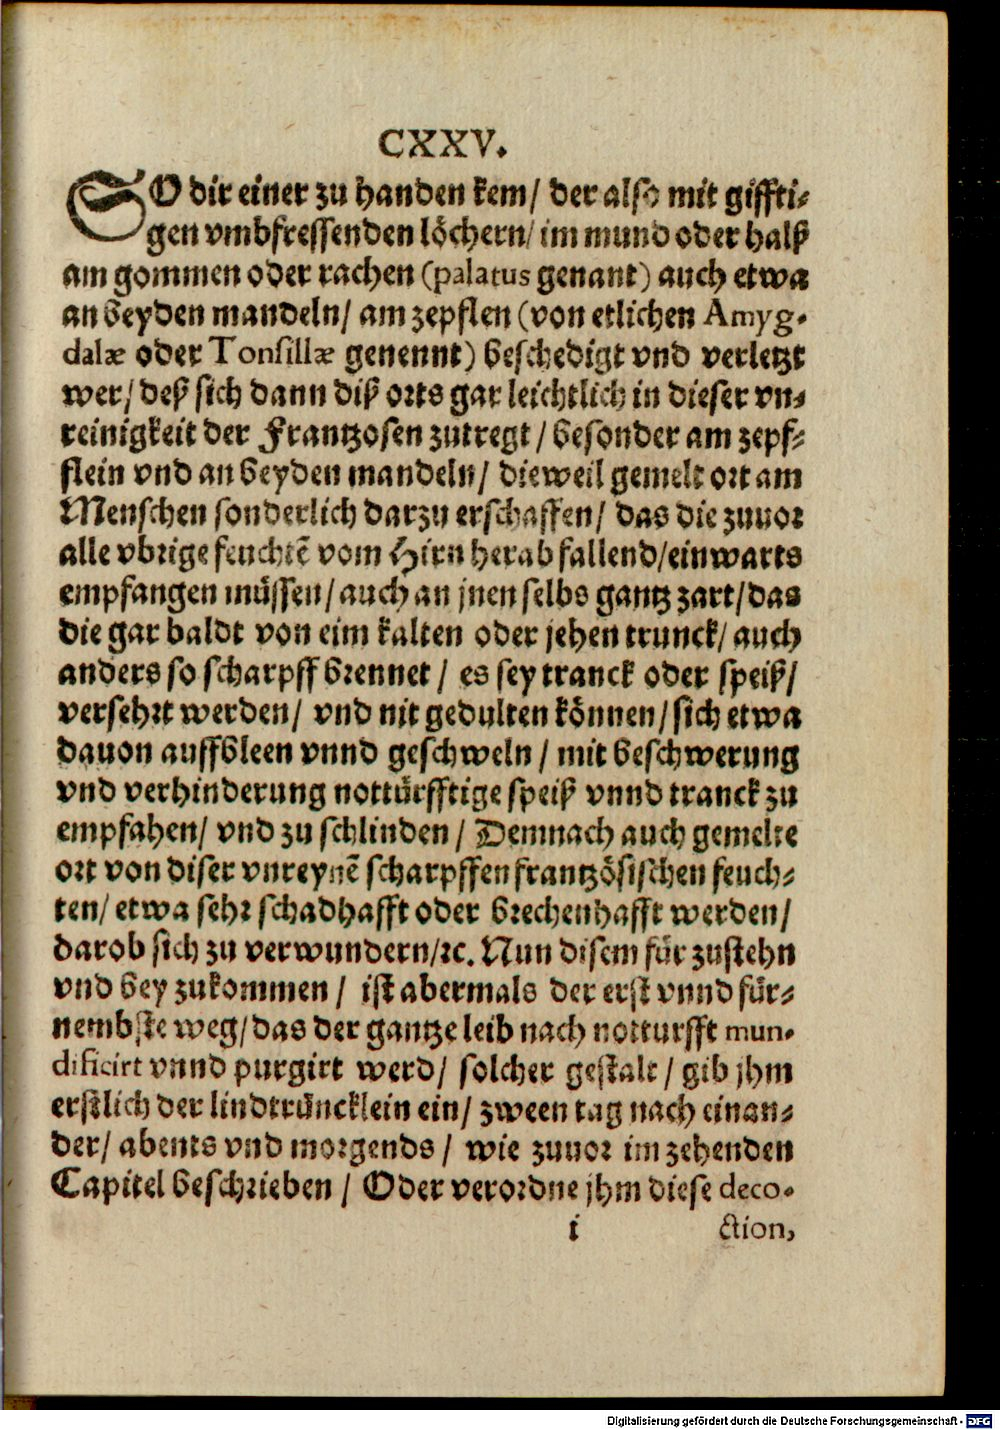 CXXV.
SO dir einer zu handen kem/ der also mit giffti-
gen vmbfressenden löchern/ im mund oder halß
am gommen oder rachen (palatus genant) auch etwa
an beyden mandeln/ am zepflen (von etlichen Amyg-
dalæ oder Tonsillæ genennt) beschedigt vnd verletzt
wer/ deß sich dann diß orts gar leichtlich in dieser vn-
reinigkeit der Frantzosen zutregt/ besonder am zepf-
flein vnd an beyden mandeln/ dieweil gemelt ort am
Menschen sonderlich darzu erschaffen/ das die zuuor
alle vbrige feuchtē vom Hirn herab fallend/einwarts
empfangen müssen/ auch an jnen selbs gantz zart/das
die gar baldt von eim kalten oder jehen trunck/ auch
anders so scharpff brennet/ es sey tranck oder speiß/
versehrt werden/ vnd nit gedulten können/ sich etwa
dauon auffbleen vnnd geschweln/ mit beschwerung
vnd verhinderung nottürfftige speiß vnnd tranck zu
empfahen/ vnd zu schlinden/ Demnach auch gemelte
ort von diser vnreynē scharpffen frantzösischen feuch-
ten/ etwa sehr schadhafft oder brechenhafft werden/
darob sich zu verwundern/ꝛc. Nun disem für zustehn
vnd bey zukommen/ ist abermals der erst vnnd für-
nembste weg/ das der gantze leib nach notturfft mun-
dificirt vnnd purgirt werd/ solcher gestalt/ gib jhm
erstlich der lindtrüncklein ein/ zween tag nach einan-
der/ abents vnd morgends/ wie zuuor im zehenden
Capitel beschrieben/ Oder verordne jhm diese deco-
i ction,
Digitalisierung gefördert durch die Deutsche Forschungsgemeinschaft - DFG